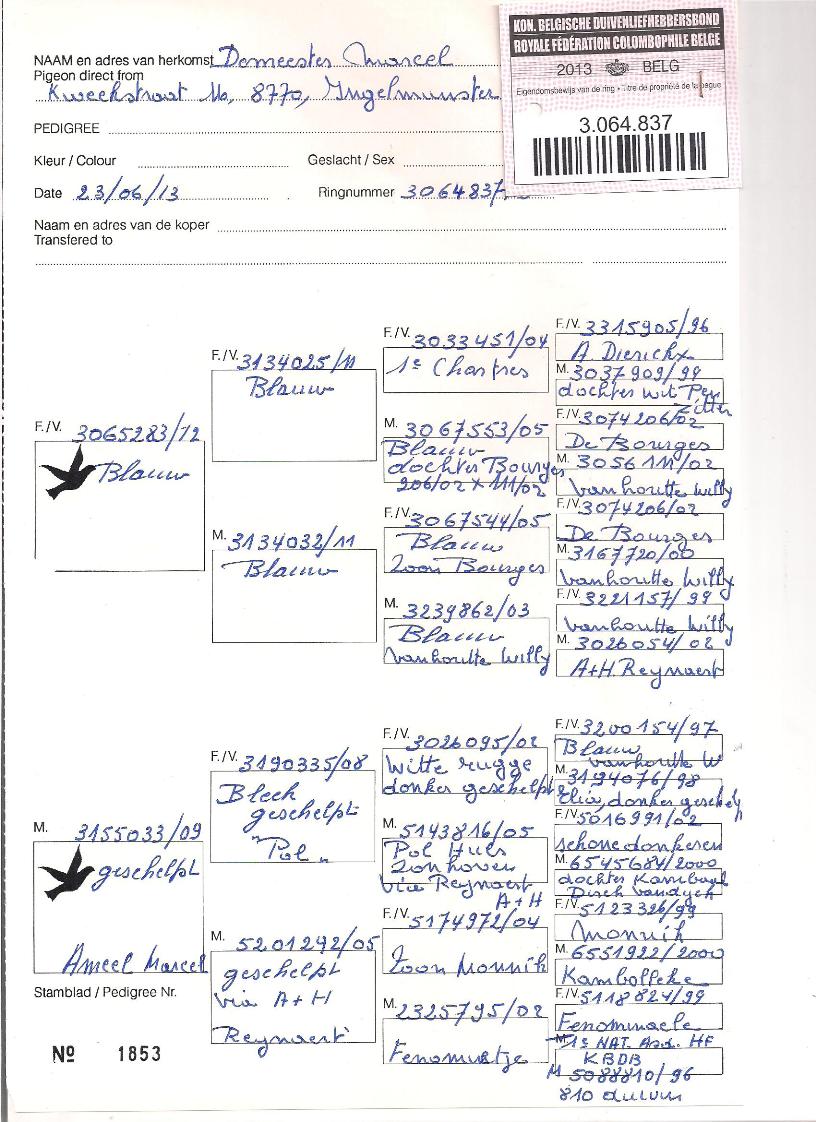 KON. BELGISCHE DUIVENLIEFHEBBERSBOND
ROYALE FÉDÉRATION COLOMBOPHILE BELGE
2013 BELG
Eigendomsbewijs van de ring • Titre de propriété de la bague
3.064.837
NAAM en adres van herkomst Demeester Marcel
Pigeon direct from
Kweekstraat 16, 8770, Ingelmunster
PEDIGREE
Kleur / Colour Geslacht / Sex
Date 23/06/13 Ringnummer 3064837
Naam en adres van de koper
Transfered to
F./V. 3065283/12
Blauw
F./V. 3134025/11
Blauw
M. 3134032/11
Blauw
F./V. 3033451/04
1e Chartres
M. 3067553/05
Blauw
dochter Bourges
206/02 x 111/02
F./V. 3067544/05
Blauw
Zoon Bourges
M. 3239862/03
Blauw
Vanhoutte Willy
F./V. 3315905/96
A. Dierickx
M. 3037909/99
dochter wit Pen
Zitter
F./V. 3074206/02
De Bourges
M. 3056111/02
Vanhoutte Willy
F./V. 3074206/02
De Bourges
M. 3167720/00
Vanhoutte Willy
F./V. 3221157/99
Vanhoutte Willy
M. 3026054/02
A+H. Reynaert
M. 3155033/09
geschelpt
Ameel Marcel
F./V. 3190335/08
Bleek
geschelpt
"Pol"
M. 5201292/05
geschelpt
via A+H
Reynaert
F./V. 3026095/02
Witte rugge
donker geschelpt
M. 5143816/05
Pol Huls
Zonhoven
via Reynaert
A+H
F./V. 5174972/04
Zoon Monnik
M. 2325795/02
Fenomeetje
F./V. 3200154/97
Blauw
Vanhoutte W
M. 3194076/98
donker geschelp
F./V. 5016991/02
schone donkeren
M. 6545684/2000
dochter
Dirck Vandyck
F./V. 5123326/99
Monnik
M. 6551922/2000
Kambolleke
F./V. 5118824/99
Fenominaele
M 1e NAT. Asd. HF
KBDB
M 5088810/96
810 duivin
Stamblad / Pedigree Nr.
Nº 1853